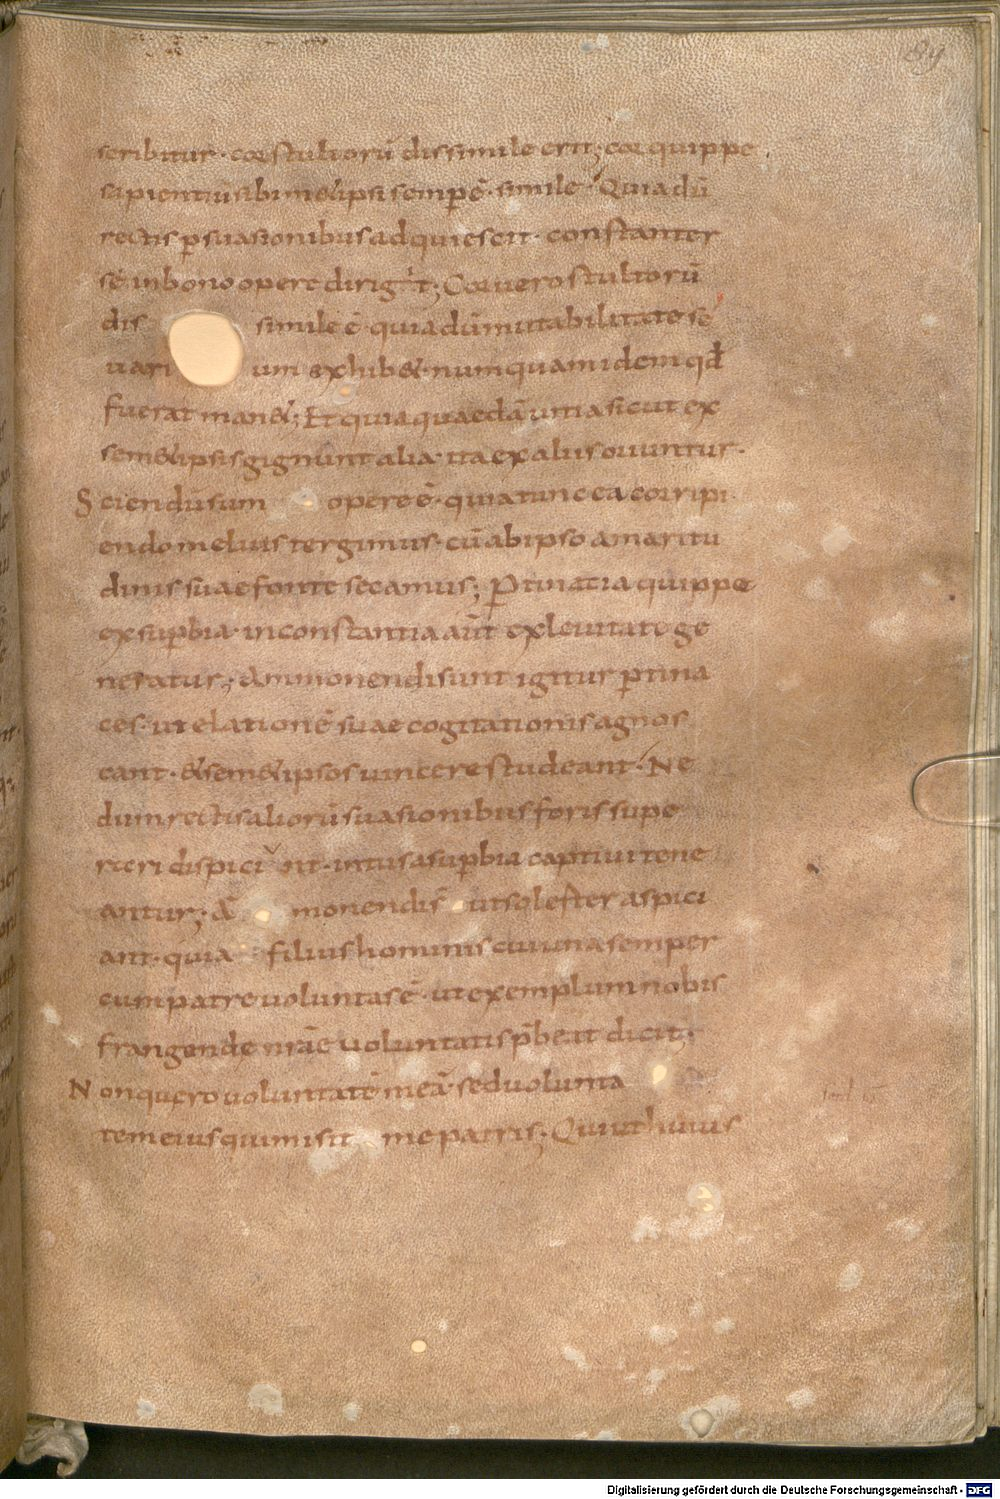 89
scribitur · cor stultorū dissimile erit; cor quippe
sapientiū sibimet ipsi sempē · simile · Quia dū
rectis p̱suasionibus adquiescit · constanter
sē in bono opere dirigit; Cor uero stultorū
dis simile ē · quia dū mutabilitate sē
uari um exhibet · numquam idem qđ
fuerat manet; Et quia quaedā uitia sicut ex
semet ipsis gignunt alia · ita ex aliis oriuntur ·
Sciendū sum opere ē · quia tunc ea corripi
endo melius tergimus · cū ab ipso amaritu
dinis suae fonte siccamus; P̱tinatia quippe
ex sup̱bia · inconstantia aūt ex leuitate ge
neratur; Ammonendi sunt igitur p̱tina
ces · ut elationē suae cogitationis agnos
cant · & semet ipsos uincere studeant · Ne
dum rectis aliorū suasionibus foris supe
rari dispiciunt · intus a sup̱bia captiui tene
antur; Ā monendi s̄ ut sollefter aspici
ant · quia filius hominis cui una semper
cum patre uoluntas ē · ut exemplum nobis
frangende nrāe uoluntatis p̄beat dicit;
Non quero uoluntatē meā sed uolunta
tem eius qui misit me patris; Qui ut huius